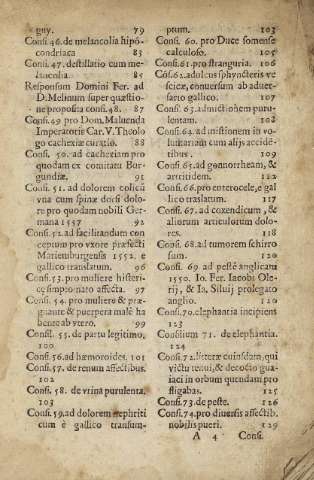 guy. 79
Consi. 46. de melancolia hipõ-
condriaca 83
Consi. 47. destillatio cum me-
lancolia. 85
Responsum Domini Fer. ad
D. Melinum super quæstio-
ne proposita consi. 48. 87
Consi. 49 pro Dom. Maluenda
Imperatoris Car. V. Theolo
go cachexiæ curatio. 88
Consi. 50. ad cachexiam pro
quodam ex comitatu Bur-
gundiæ. 91
Consi. 51. ad dolorem colicũ
vna cum spinæ dorsi dolo-
re pro quodam nobili Ger-
mana 1557 92
Consi. 52. ad facilitandum con
ceptum pro vxore præfecti
Marienburgensis 1552. e
gallico translatum. 96
Consi. 53. pro muliere histeri-
ce simptomato affecta. 97
Consi. 54. pro muliere & præ-
gnante & puerpera malè ha
bente ab vtero. 99
Consil. 55. de partu legitimo,
100
Consi. 56. ad hæmoroides. 101
Consi. 57. de renum affectibus.
102
Consi. 58. de vrina purulenta.
103
Consi. 59. ad dolorem nephriti
cum è gallico transum-
ptum. 103
Consi. 60. pro Duce somense
calculoso. 105
Consi. 61. pro stranguria. 106
Cõsi. 62. ad ulcus sphyncteris ve
sicæ, conuersum ab aduer-
sario gallico. 107
Consi. 63. ad mictionem puru-
lentam. 108
Consi. 64. ad mictionem in vo-
luntariam cum alijs accidẽ-
tibus. 109
Consi. 65. ad gonnorrheam, &
artritidem. 122
Consi. 66. pro enterocele, e gal
lico traslatum. 117
Consi. 67. ad coxendicum, &
aliorum articulorum dolo-
res. 118
Consi. 68. ad tumorem schirro
sum. 120
Consi. 69 ad pestẽ anglicam
1550. Io. Fer. Iacobi Ole-
rij, & Io. Siluij prolegato
anglio. 120
Consi. 70. elephantia incipiens
123
Consilium 71. de elephantia.
124
Consi. 72. litteræ cuiusdam, qui
victu tenui, & decocto gua-
iaci in orbum quendam pro
fligabas. 125
Consi. 73. de peste. 126
Consi. 74. pro diuersis affectib.
nobilis pueri. 129
A 4 Consi.